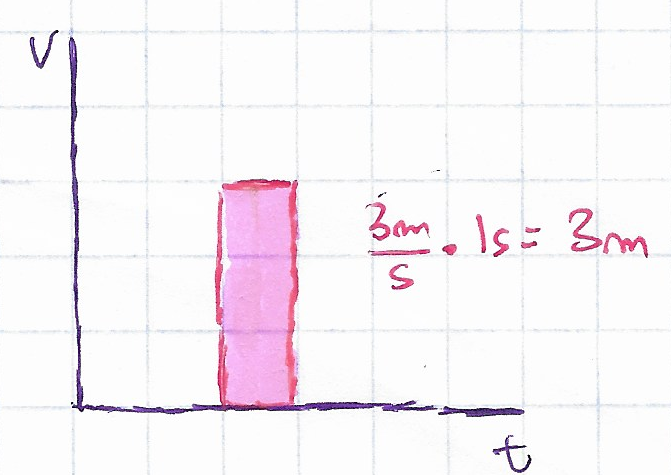 V
3m/s · 1s = 3m
t